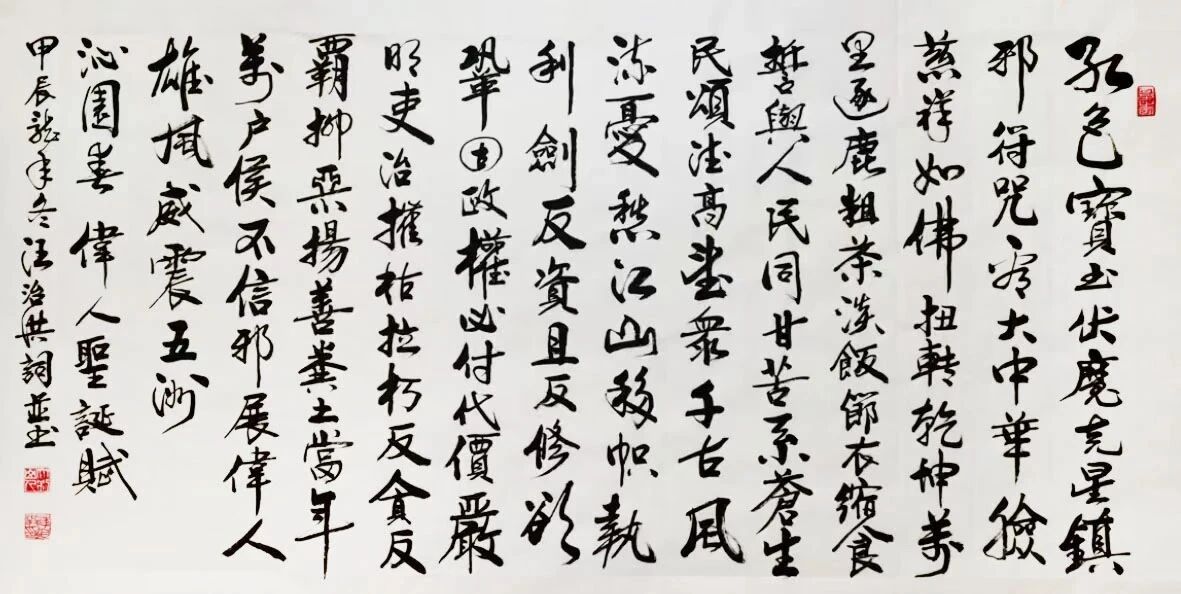 红色寶书伏魔克星鎮
邪符咒 大中華
慈祥如佛扭轉乾坤萬
里逐鹿粗茶淡飯節衣缩食
誓與人民同甘苦系蒼生
民頌德高望衆千古風
流憂愁江山移幟執
利劍反資且反修欲
鞏固政權必付代價嚴
明吏治摧枯拉朽反貪反
霸抑惡揚善糞土當年
萬户侯不信邪展偉人
雄風威震五洲
沁園春偉人聖誕賦
甲辰龍年冬汪治洪詞並书